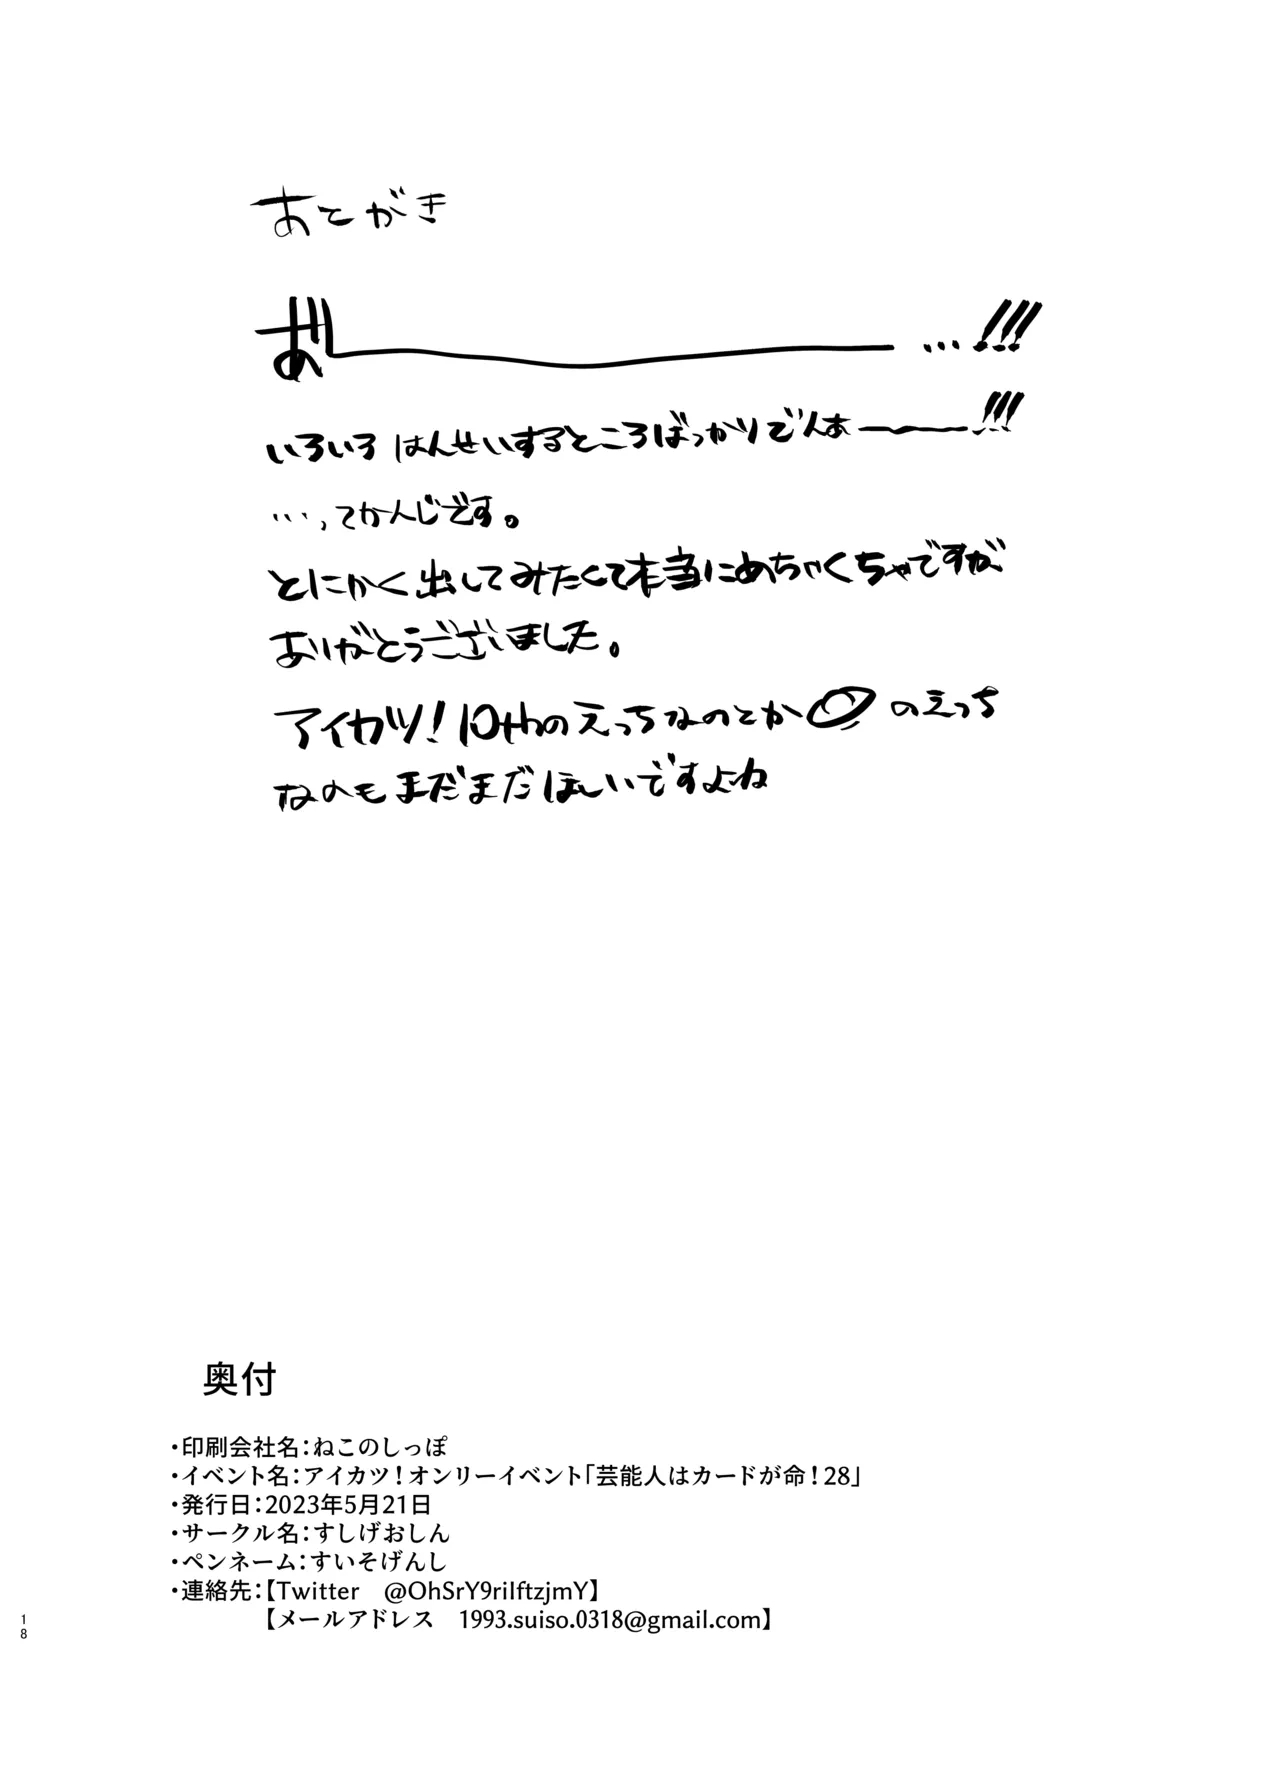 あとがき
あ゛ー…!!!
いろいろ はんせいするところばっかりでんあ゛ー!!!
…,てかんじです。
とにかく出してみたくて本当にめちゃくちゃですが
ありがとうございました。
アイカツ!10thのえっちなのとか のえっち
なのもまだまだほしいですよね
奥付
・印刷会社名:ねこのしっぽ
・イベント名:アイカツ!オンリーイベント「芸能人はカードが命!28」
・発行日:2023年5月21日
・サークル名:すしげおしん
・ペンネーム:すいそげんし
・連絡先:【Twitter @OhSrY9riIftzjmY】
【メールアドレス 1993.suiso.0318@gmail.com】
18